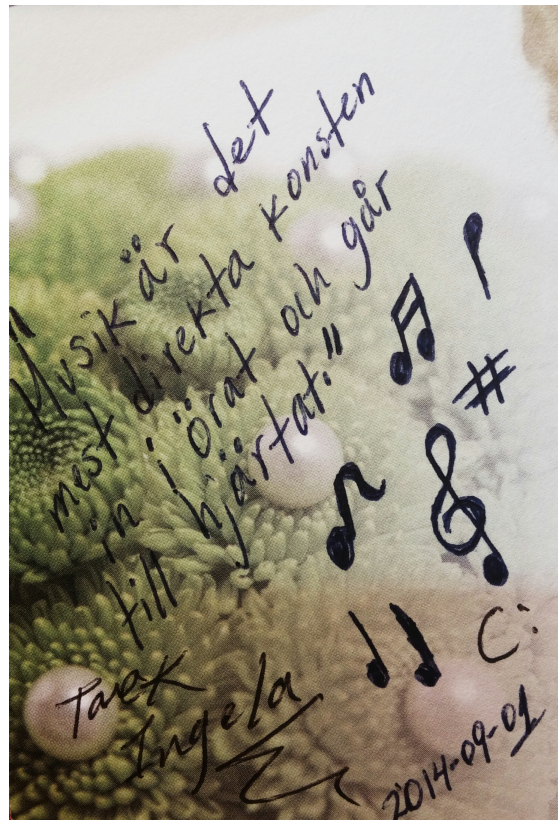 "Musik är det
mest direkta konsten
in i örat och går
till hjärtat."
#
Tarek
Ingela
C:
2014-09-01